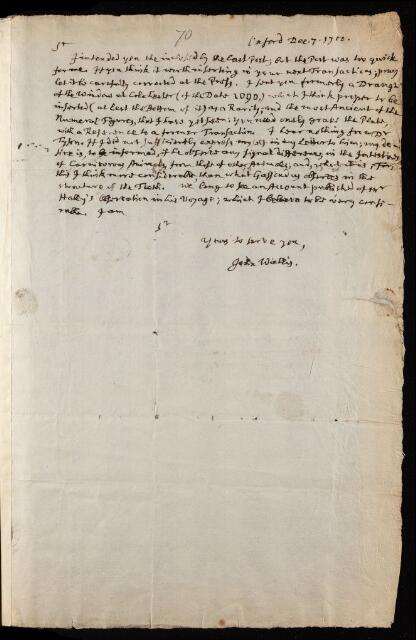 70
Oxford Dec. 7. 1700.
Sr
I intended you the inclosed by the Last Post; but the Post was too quick
for me. If you think it worth inserting in your next Transactions; pray
let it be carefully corrected at the Press. I sent you formerly a Draught
of the Window at Colchester (of the Date 1090) which I think proper to be
inserted (at lest the Bottom of it) as a Rarity; and the most Ancient of the
Numeral Figures, that I have yet seen: you need onely grave the Plate,
with a Reference to a former Transaction. I hear nothing from Dr
Tyson. If I did not sufficiently express myself in my Letter to him; my de-
sire is, to be informed, if he observe any signal difference, in the Intestines
of Carnivorous Animals, from those of other Animals; and, what it is. For,
this I think more considerable than what Gassendus observes in the
structure of the Teeth. We long to see an Account published of Mr
Haley's observation in his Voyage; which I believe to be very consi-
rable. I am
Sr
Yours to serve you,
John Wallis.